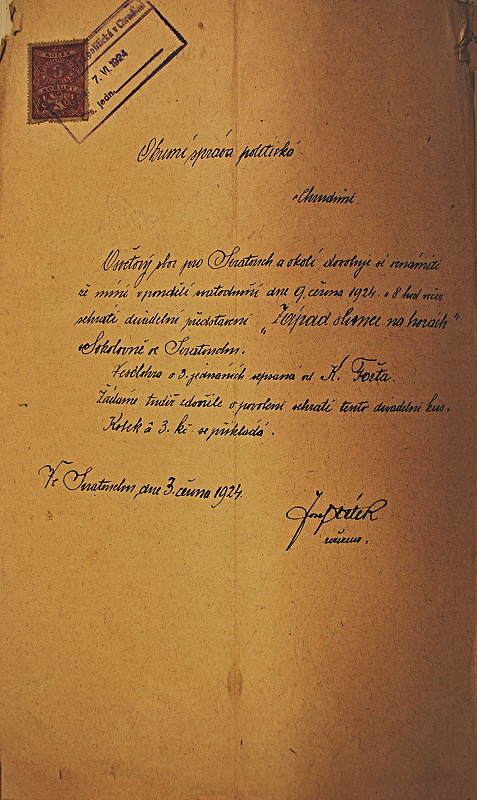 politická v Chrudimi
7. VI. 1924
jedn.
KOLEK
3
KORUNY
Okresní správa politická
v Chrudimi.
Osvětový sbor pro Sinatouch a okolí dovoluje si oznámiti
že míní v pondělí svatodušní dne 9. června 1924 o 8 hod večer
sehráti divadelní představení „Západ slunce na horách"
v Sokolovně ve
Veselohra o 3. jednáních sepsaná od K. Fořta.
Žádáme tudíž zdvořile o povolení sehráti tento divadelní kus.
Kolek à 3. kč. se přikládá.
Ve dne 3. června 1924.
Josef